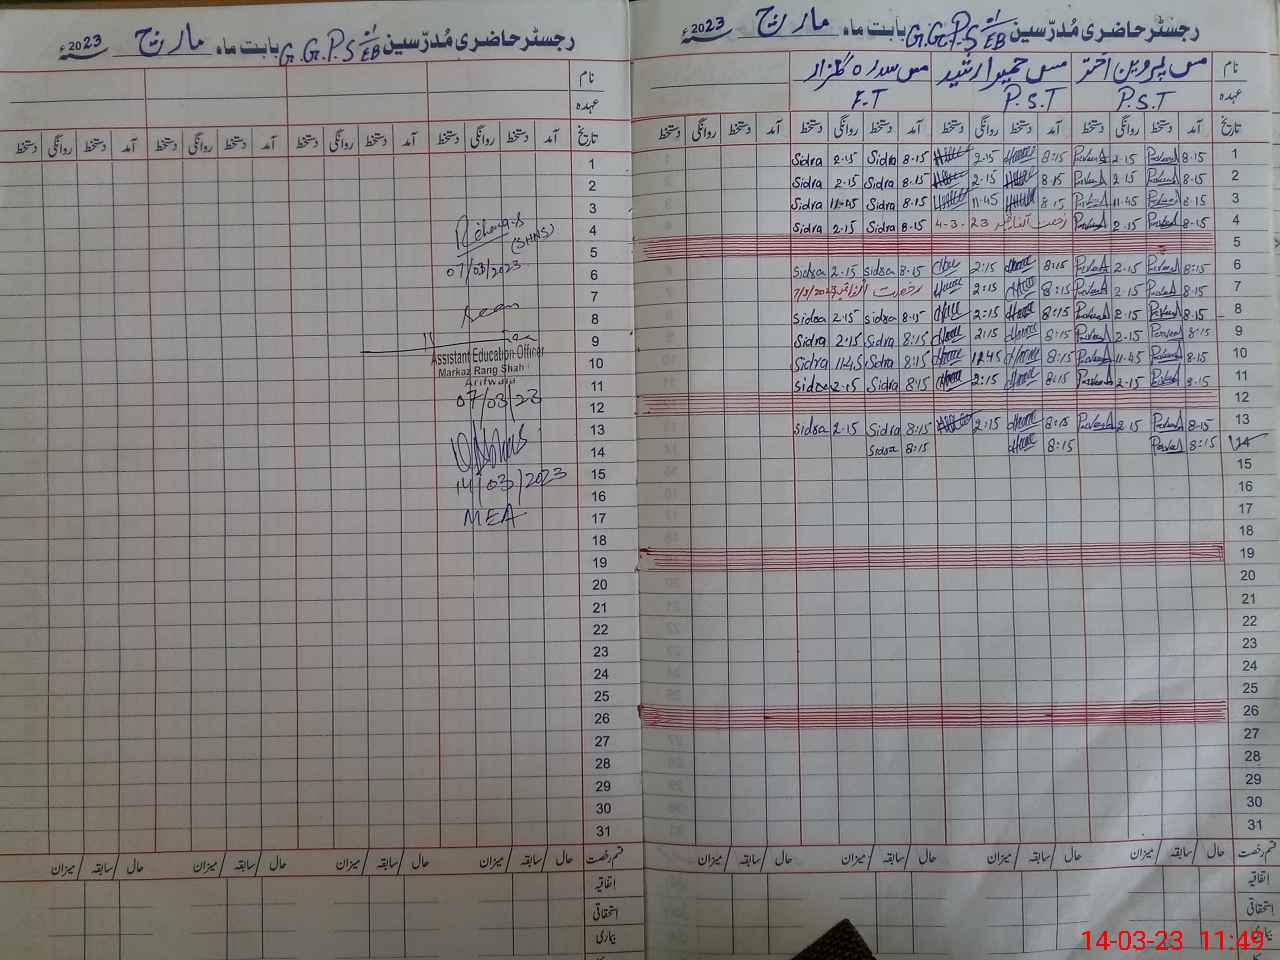 رجسٹر حاضری مُدرّسین G.G.P.S 1/EB بابت ماہ مارچ 2023ء
نام مس پروین اختر مس حمیرا رشید مس سدرہ گلزار
عہدہ P.S.T P.S.T E.T
تاریخ آمد دستخط روانگی دستخط آمد دستخط روانگی دستخط آمد دستخط روانگی دستخط آمد دستخط روانگی دستخط
1 8.15 2.15 8:15 2.15 8.15 Sidra 2.15 Sidra
2 8.15 2.15 8.15 2.15 8.15 Sidra 2.15 Sidra
3 8.15 11.45 8.15 11.45 8.15 Sidra 11.45 Sidra
4 8.15 2.15 رخصت 4-3-23 8.15 Sidra 2.15 Sidra
5
6 8:15 2.15 8:15 2:15 8.15 Sidra 2.15 Sidra
7 8.15 2.15 8:15 2:15 رخصت 7/3/2023
8 8.15 2.15 8:15 2:15 8.15 Sidra 2.15 Sidra
9 8:15 2.15 8:15 2:15 8:15 Sidra 2.15 Sidra
10 8.15 11.45 8:15 11.45 8:15 Sidra 11.45 Sidra
11 8.15 2.15 8:15 2:15 8:15 Sidra 2.15 Sidra
12
13 8.15 2.15 8:15 2:15 8:15 Sidra 2.15 Sidra
14 8:15 8:15 8:15 Sidra
15
16
17
18
19
20
21
22
23
24
25
26
27
28
29
30
31
قسم رخصت حال / سابقہ / میزان حال / سابقہ / میزان حال / سابقہ / میزان حال / سابقہ / میزان
اتفاقیہ
استحقاقی
بیماری
14-03-23 11:49
رجسٹر حاضری مُدرّسین G.G.P.S 1/EB بابت ماہ مارچ 2023ء
نام
عہدہ
تاریخ آمد دستخط روانگی دستخط آمد دستخط روانگی دستخط آمد دستخط روانگی دستخط آمد دستخط روانگی دستخط
1
2
3
4
5
6 07/03/2023
7
8
9
Assistant Education Officer
10 Markaz Rang Shah
Arifwala
11
12 07/03/23
13
14
15 14/03/2023
16
17 MEA
18
19
20
21
22
23
24
25
26
27
28
29
30
31
قسم رخصت حال / سابقہ / میزان حال / سابقہ / میزان حال / سابقہ / میزان حال / سابقہ / میزان
اتفاقیہ
استحقاقی
بیماری